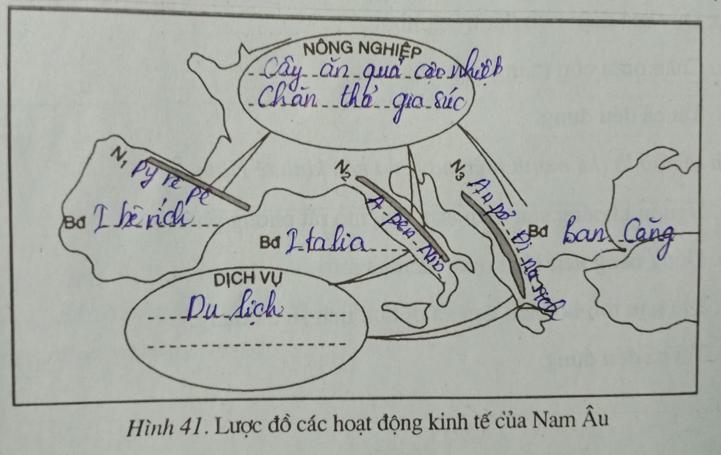 NÔNG NGHIỆP
Cây ăn quả cận nhiệt
Chăn thả gia súc
N1 Py rê nê
N2 A-pen-nin
N3 An pơ Đi na rich
Bđ I bê rich
Bđ Italia
Bđ Ban Căng
DỊCH VỤ
Du lịch
Hình 41. Lược đồ các hoạt động kinh tế của Nam Âu